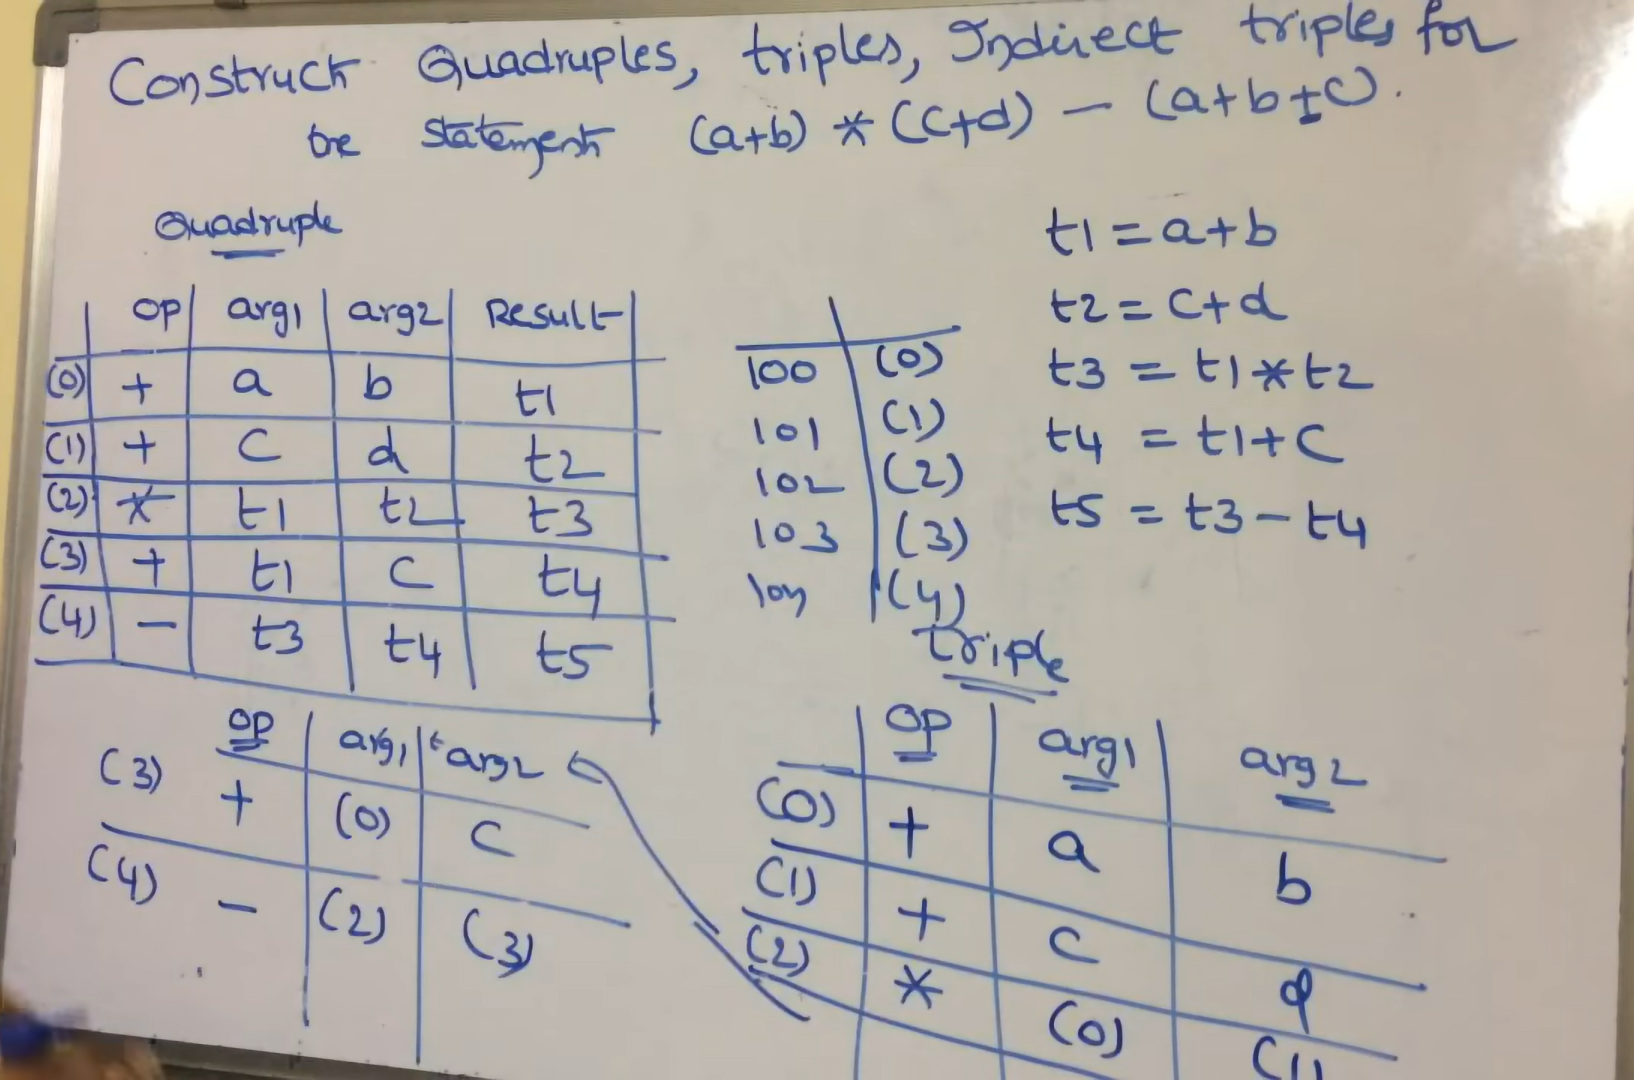 Construct Quadruples, triples, Indirect triples for
the statement (a+b) * (c+d) - (a+b+c).
Quadruple
op arg1 arg2 Result
(0) + a b t1
(1) + c d t2
(2) * t1 t2 t3
(3) + t1 c t4
(4) - t3 t4 t5
100 (0)
101 (1)
102 (2)
103 (3)
104 (4)
t1 = a+b
t2 = c+d
t3 = t1*t2
t4 = t1+c
t5 = t3-t4
Triple
op arg1 arg2
(0) + a b
(1) + c d
(2) * (0) (1)
op arg1 arg2
(3) + (0) c
(4) - (2) (3)